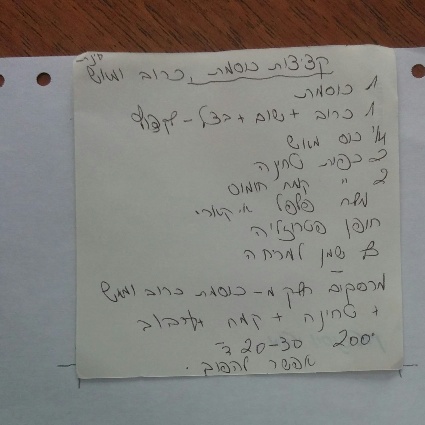 קציצות כוסמת, כרוב ומאש
1 כוסמת
1 כרוב + שום + בצל - לקצוץ
1/4 כוס מאש
2 כפות טחינה
2 " קמח חומוס
מלח פלפל א. קארי
חופן פטרוזיליה
שמן למריחה
מרסקים חלק מ- כוסמת כרוב ומש
+ טחינה + קמח +ערבוב
200° 20-30 ד'
אפשר להפוך.